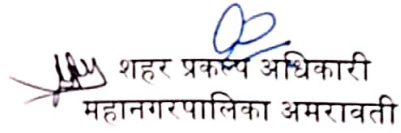 शहर प्रकल्प अधिकारी
महानगरपालिका अमरावती